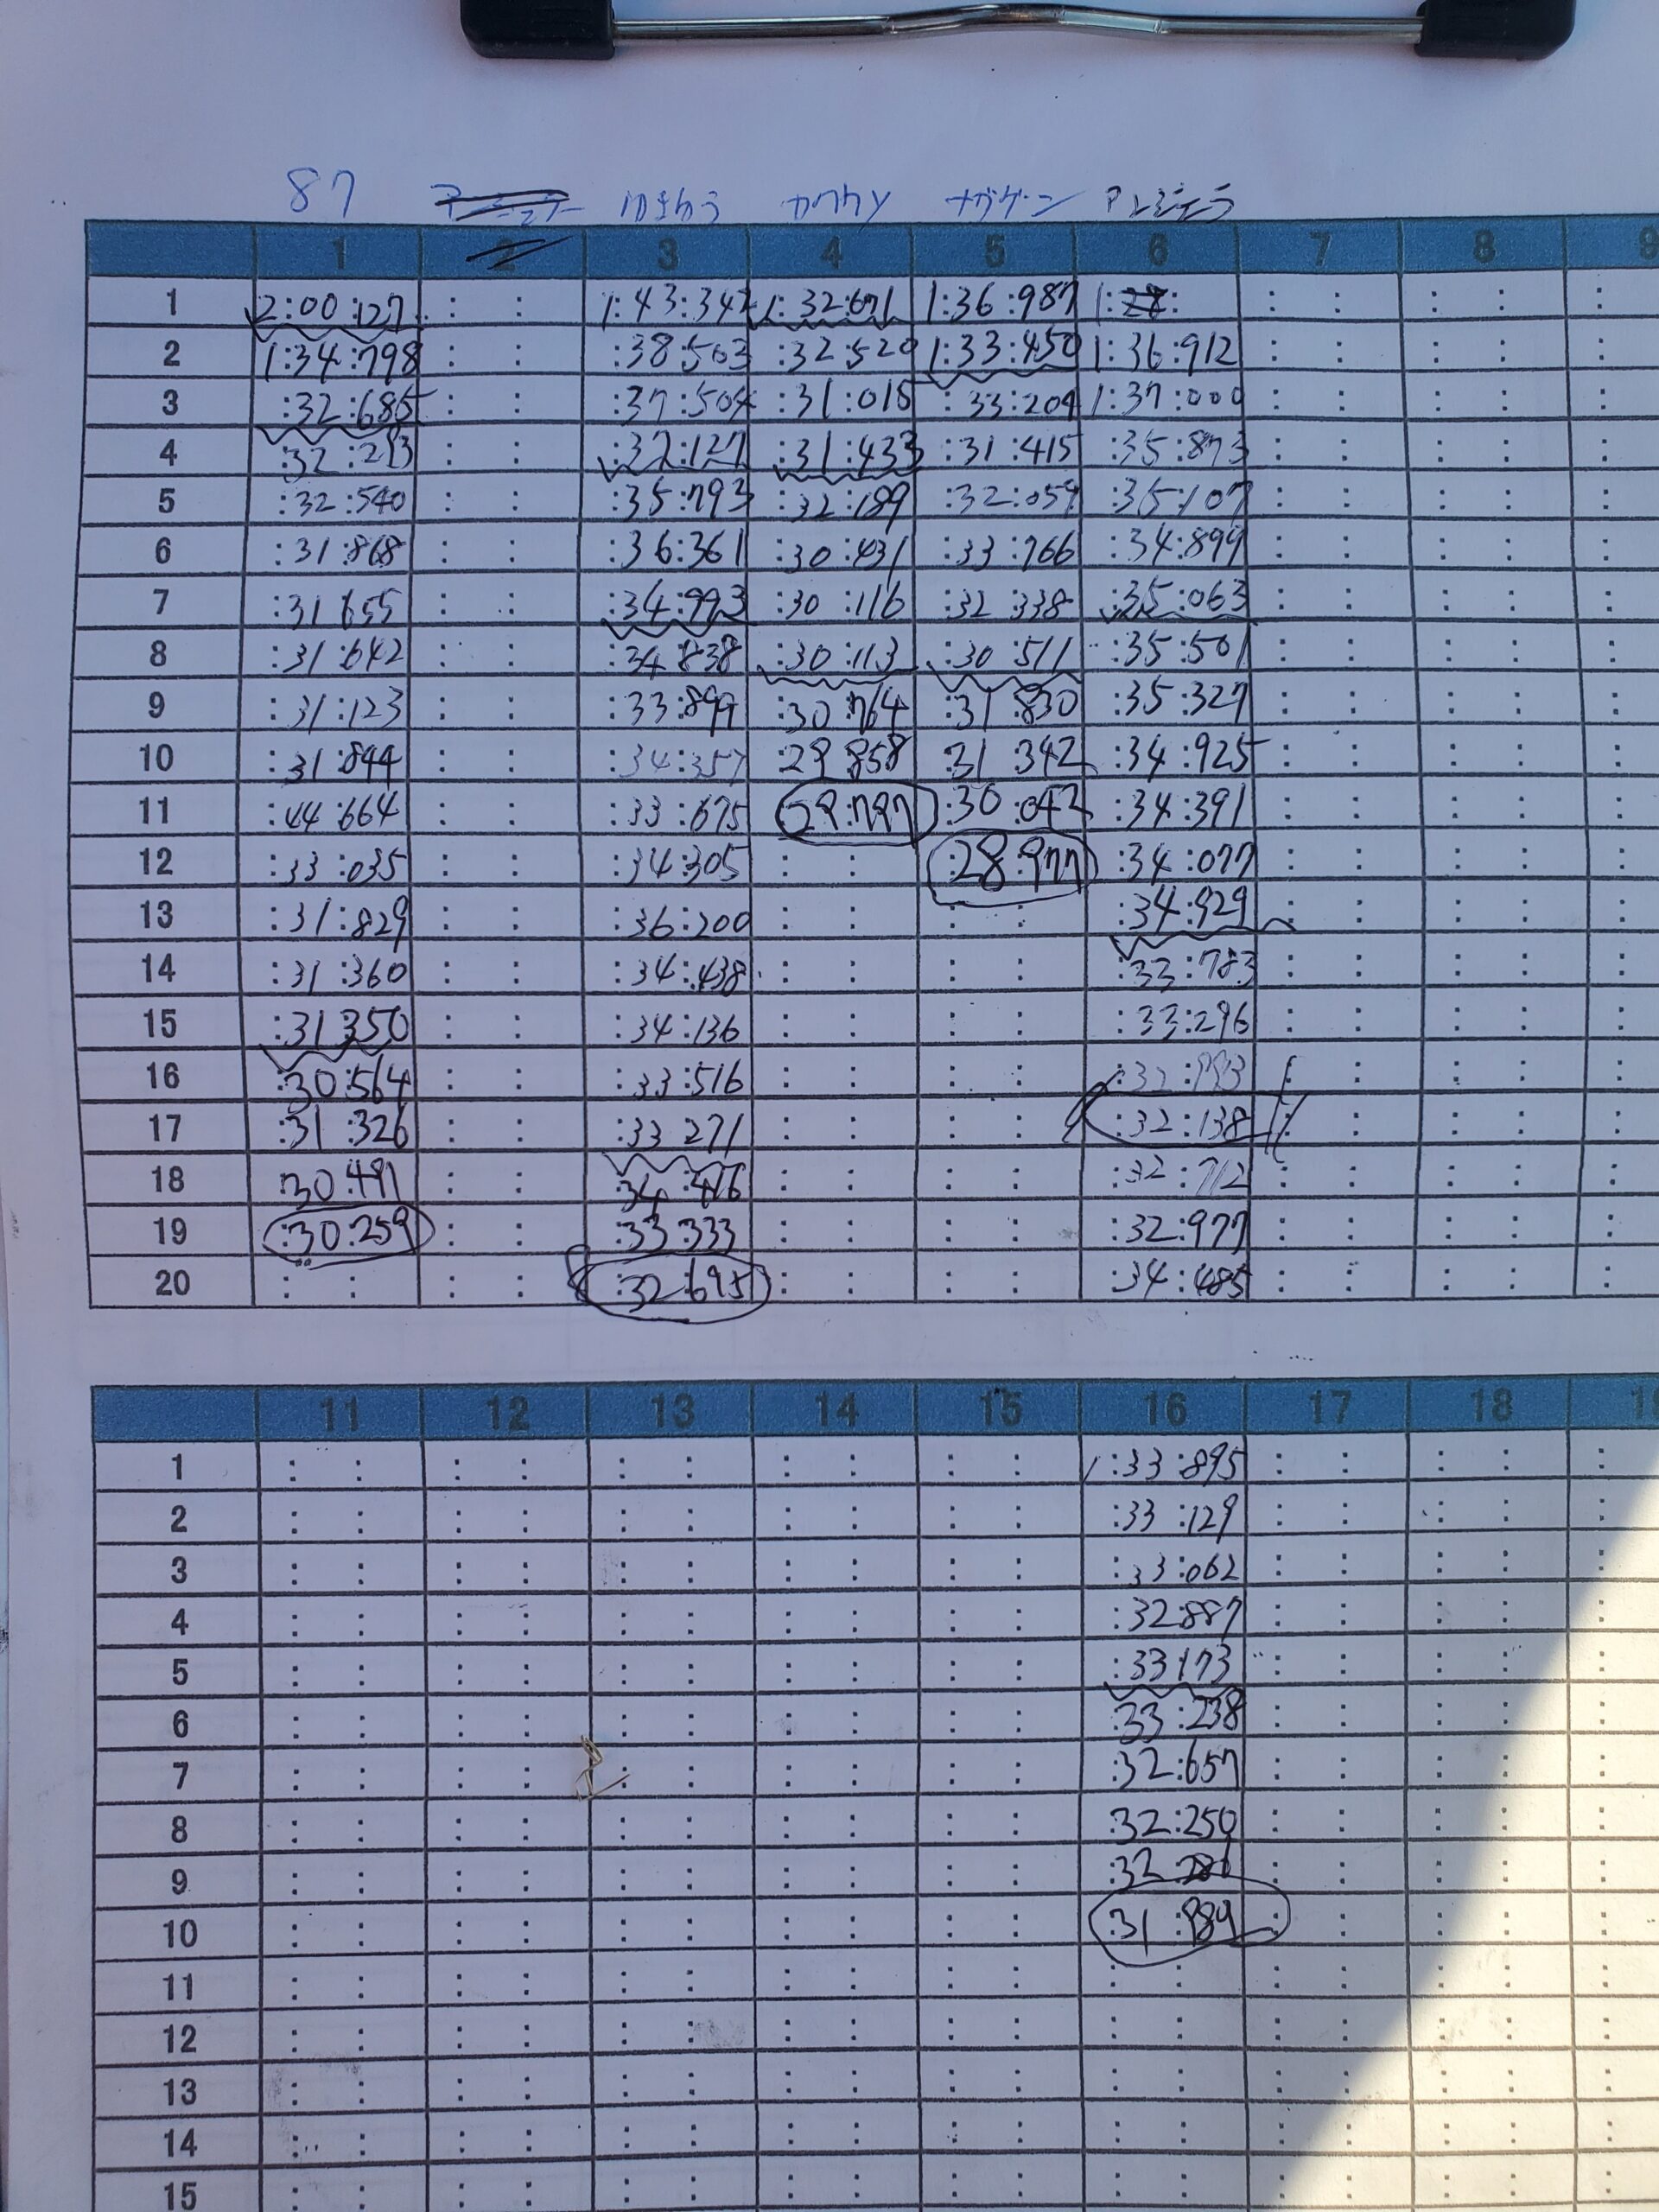 87 ゆきむら カワウソ アレジェラ
1 2 3 4 5 6 7 8 9
1 2:00:127 : : 1:43:347 1:32:671 1:36:987 1: : : : : :
2 1:34:798 : : :38:503 :32:520 1:33:450 1:36:912 : : : : :
3 :32:685 : : :37:504 :31:015 :33:209 1:37:000 : : : : :
4 :32:213 : : :37:127 :31:433 :31:415 :35:873 : : : : :
5 :32:540 : : :35:793 :32:189 :32:059 :35:107 : : : : :
6 :31:868 : : :36:361 :30:431 :33:766 :34:899 : : : : :
7 :31 655 : : :34:993 :30:116 :32 338 :35:063 : : : : :
8 :31:642 : : :34:838 :30:113 :30:511 :35:501 : : : : :
9 :31:123 : : :33:899 :30:764 :31:830 :35:327 : : : : :
10 :31:844 : : :34:357 :29 858 31 342 :34:925 : : : : :
11 :44:664 : : :33:675 29:797 :30:042 :34:391 : : : : :
12 :33:035 : : :34:305 : : :28:977 :34:077 : : : : :
13 :31:829 : : :36:200 : : : : :34:929 : : : : :
14 :31:360 : : :34:438 : : : : :33:783 : : : : :
15 :31 350 : : :34:136 : : : : :33:296 : : : : :
16 :30:564 : : :33:516 : : : : :32: : : : : :
17 :31:326 : : :33 271 : : : : :32:138 : : : : :
18 :30:491 : : :34 : : : : :32:712 : : : : :
19 :30:259 : : :33 333 : : : : :32:977 : : : : :
20 : : : : :32:695 : : : : :34:485 : : : : :
11 12 13 14 15 16 17 18
1 : : : : : : : : : : 1:33:895 : : : : :
2 : : : : : : : : : : :33:129 : : : : :
3 : : : : : : : : : : :33:062 : : : : :
4 : : : : : : : : : : :32:887 : : : : :
5 : : : : : : : : : : :33:173 : : : : :
6 : : : : : : : : : : :33:238 : : : : :
7 : : : : : : : : : : :32:657 : : : : :
8 : : : : : : : : : : :32:250 : : : : :
9 : : : : : : : : : : :32 : : : : :
10 : : : : : : : : : : :31:989 : : : : :
11 : : : : : : : : : : : : : : : : :
12 : : : : : : : : : : : : : : : : :
13 : : : : : : : : : : : : : : : : :
14 : : : : : : : : : : : : : : : : :
15 : : : : : : : : : : : : : : : : :